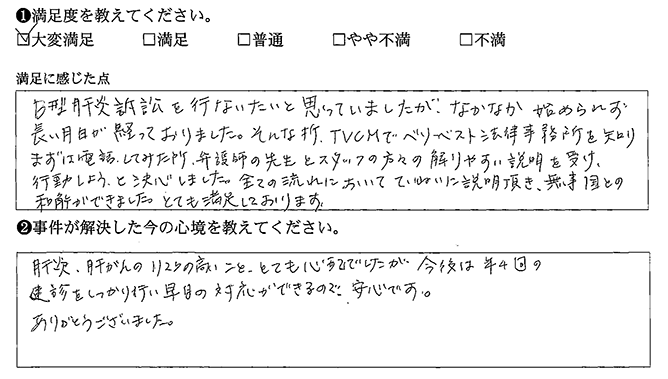 ❶満足度を教えてください。
☑大変満足 □満足 □普通 □やや不満 □不満
満足に感じた点
B型肝炎訴訟を行ないたいと思っていましたが、なかなか始められず
長い月日が経っておりました。そんな折、TVCMでベリーベスト法律事務所を知り
まずは電話してみた所、弁護師の先生とスタッフの方々の解りやすい説明を受け、
行動しようと決心しました。全ての流れにおいてていねいに説明頂き、無事国との
和解ができました。とても満足しております。
❷事件が解決した今の心境を教えてください。
肝炎、肝がんのリスクの高いこと、とても心配でしたが 今後は年4回の
健診をしっかり行い早目の対応ができるので、安心です。
ありがとうございました。